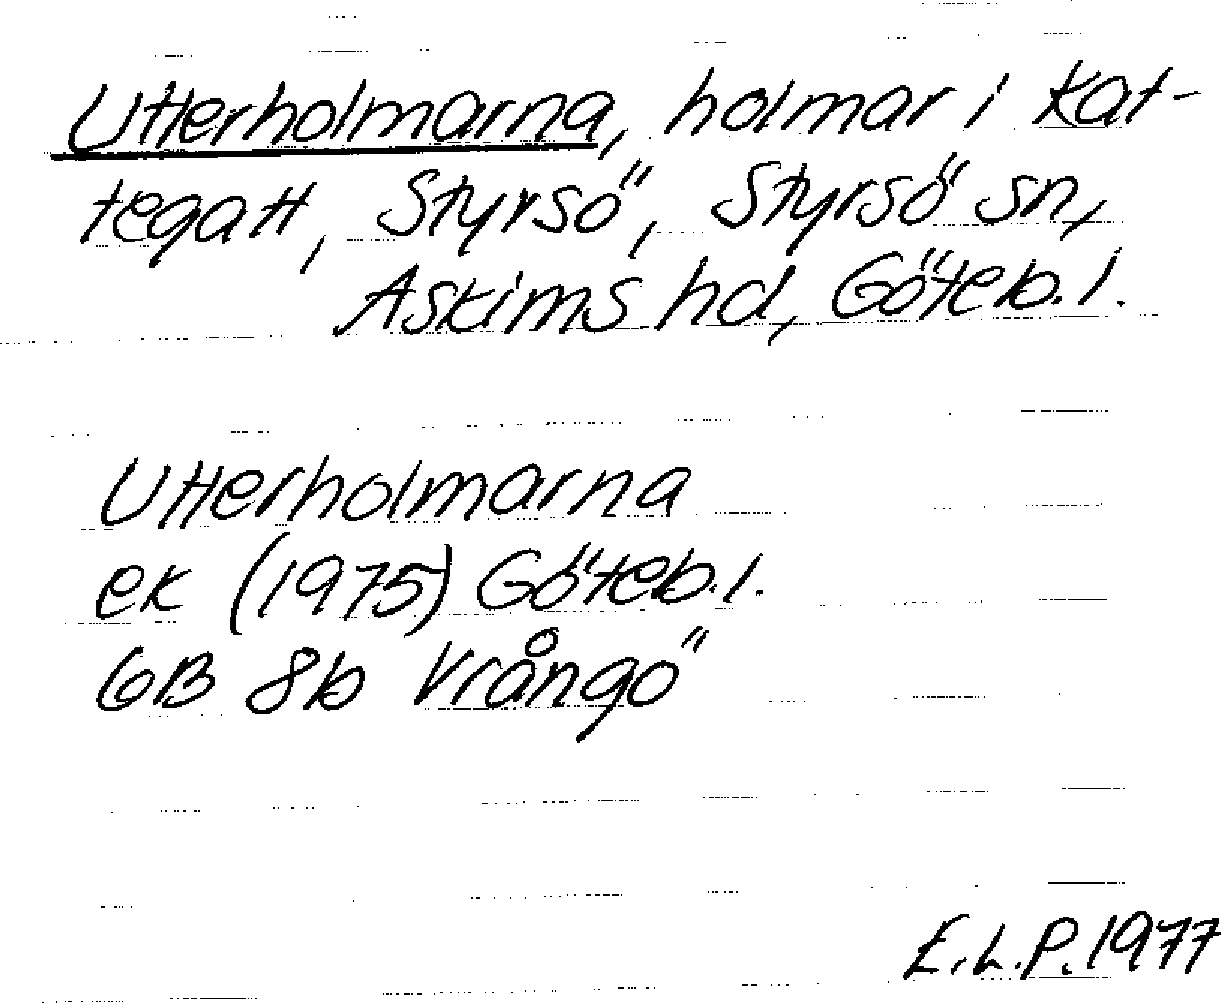 Utterholmarna, holmar i Kat-
tegatt, Styrsö, Styrsö sn,
Askims hd, Göteb.l.
Utterholmarna
ek (1975) Göteb.l.
6B 8b Vrångö
E.L.P.1977